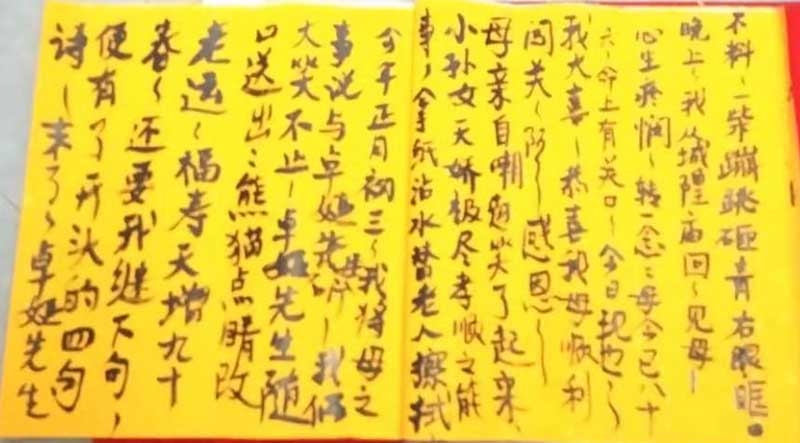 不料、一柴蹦跳砸青右眼眶。
晚上、我从城隍庙回、见母、
心生疼悯、转一念：母今已八十
六、命上有关口、今日现也、
我大喜、恭喜我母顺利
闯关、阿、感恩、
母亲自嘲迥笑了起来、
小孙女天娇极尽孝顺之能
事、拿纸沾水替老人擦拭、
今年正月初三、我将母之
事说与卓娅先生听、我俩
大笑不止、卓娅先生随
口送出：熊猫点睛改
老运、福寿天增九十
春、还要我继下句、
便有了开头的四句
诗、末了、卓娅先生